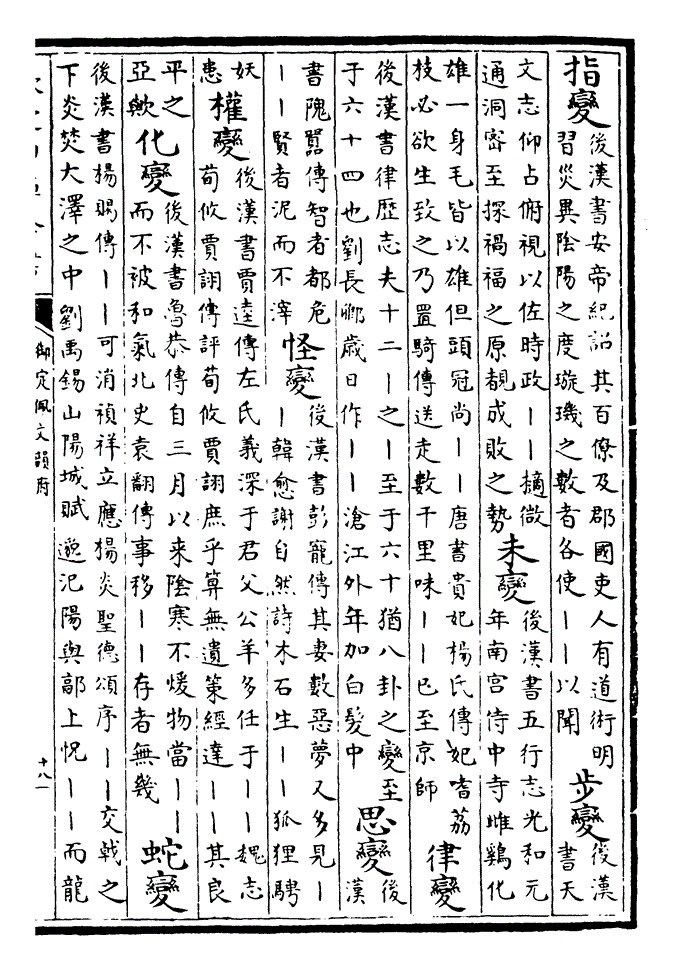 指變
後漢書安帝紀詔其百僚及郡國吏人有道術明
習災異陰陽之度璇璣之數者各使丨丨以聞
步變
後漢
書天
文志仰占俯視以佐時政丨丨擿微
通洞宻至採禍福之原覩成敗之勢
未變
後漢書五行志光和元
年南宫侍中寺雌鷄化
雄一身毛皆以雄但頭冠尚丨丨唐書貴妃楊氏傳妃嗜荔
枝必欲生致之乃置騎傳送走數千里味丨丨已至京師
律變
後漢書律歴志夫十二丨之丨至于六十猶八卦之變至
于六十四也劉長卿歲日作丨丨滄江外年加白髮中
思變
後
漢
書隗嚣傳智者都危
丨丨賢者泥而不滓
怪變
後漢書彭寵傳其妻數惡夢又多見丨
丨韓愈謝自然詩木石生丨丨狐狸騁
妖
患
權變
後漢書賈逵傳左氏義深于君父公羊多任于丨丨魏志
荀攸賈詡傳評荀攸賈詡庶乎算無遺策經達丨丨其良
平之
亞歟
化變
後漢書魯恭傳自三月以来陰寒不煖物當丨丨
而不被和氣北史袁翻傳事移丨丨存者無幾
蛇變
後漢書楊賜傳丨丨可消禎祥立應揚炎聖德頌序丨丨交戟之
下炎焚大澤之中劉禹錫山陽城賦邀汜陽與鄗上怳丨丨而龍
御定佩文韻府